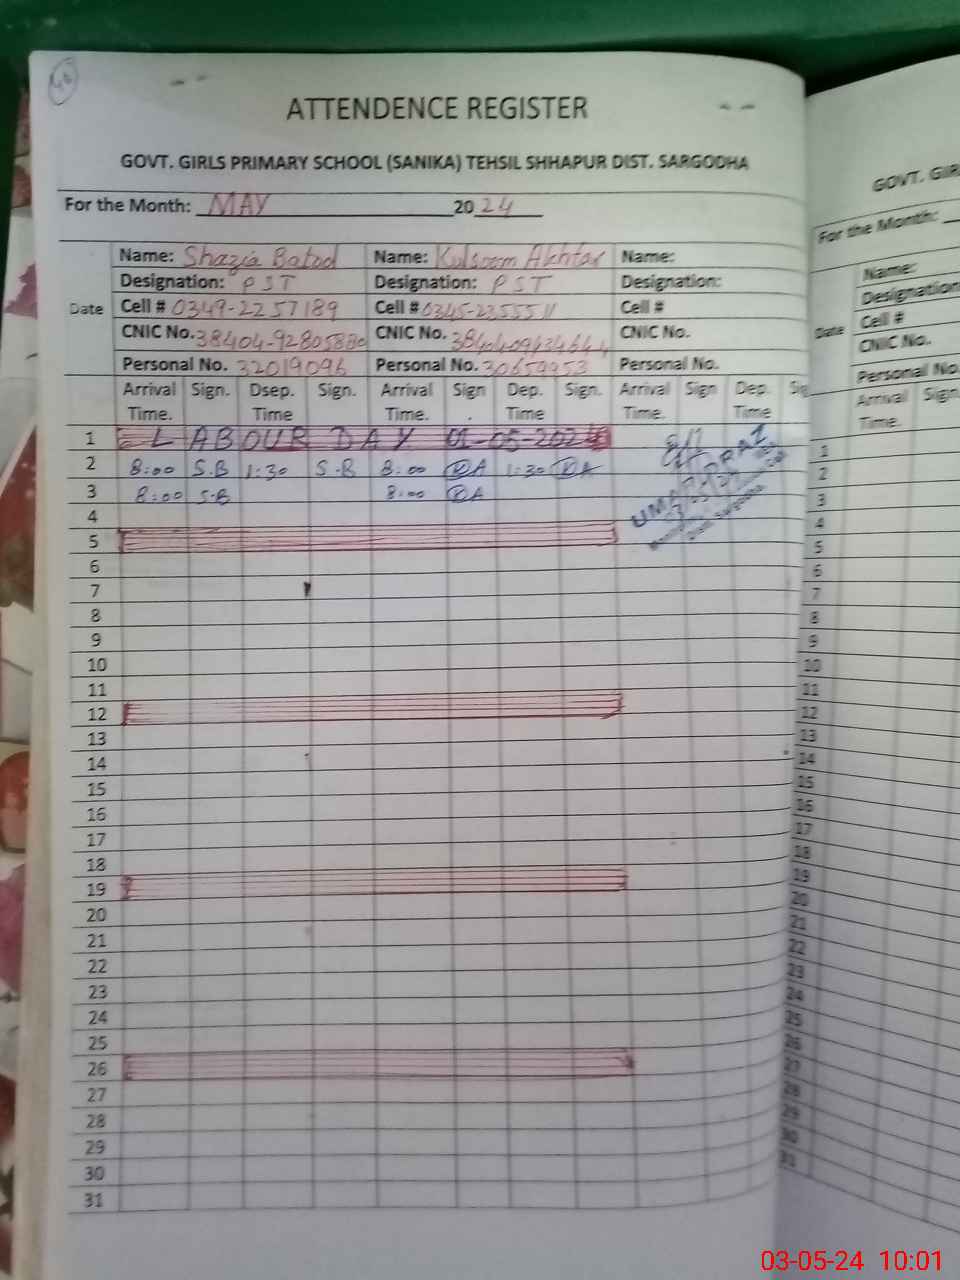 ATTENDENCE REGISTER
GOVT. GIRLS PRIMARY SCHOOL (SANIKA) TEHSIL SHHAPUR DIST. SARGODHA
For the Month: MAY 2024
Name: Shazia Batool Name: Kulsoom Akhtar Name:
Designation: PST Designation: PST Designation:
Date Cell # 0349-2257189 Cell # 0345-2355511 Cell #
CNIC No. CNIC No. CNIC No.
Personal No. 32019096 Personal No. 30659953 Personal No.
Arrival Sign. Dsep. Sign. Arrival Sign Dep. Sign. Arrival Sign Dep.
Time. Time Time. . Time Time. Time
1 LABOUR DAY 01-05-2024
2 8:00 S.B 1:30 S.B 8:00 KA 1:30 KA
3 8:00 S.B 8:00 KA
4
5
6
7
8
9
10
11
12
13
14
15
16
17
18
19
20
21
22
23
24
25
26
27
28
29
30
31
UMAR DRAZ
GOVT. GIRL
For the Month:
Name:
Designation
Date Cell #
CNIC No.
Personal No.
Arrival Sign.
Time.
1
2
3
4
5
6
7
8
9
10
11
12
13
14
15
16
17
18
19
20
21
22
23
24
25
26
27
28
29
30
31
03-05-24 10:01